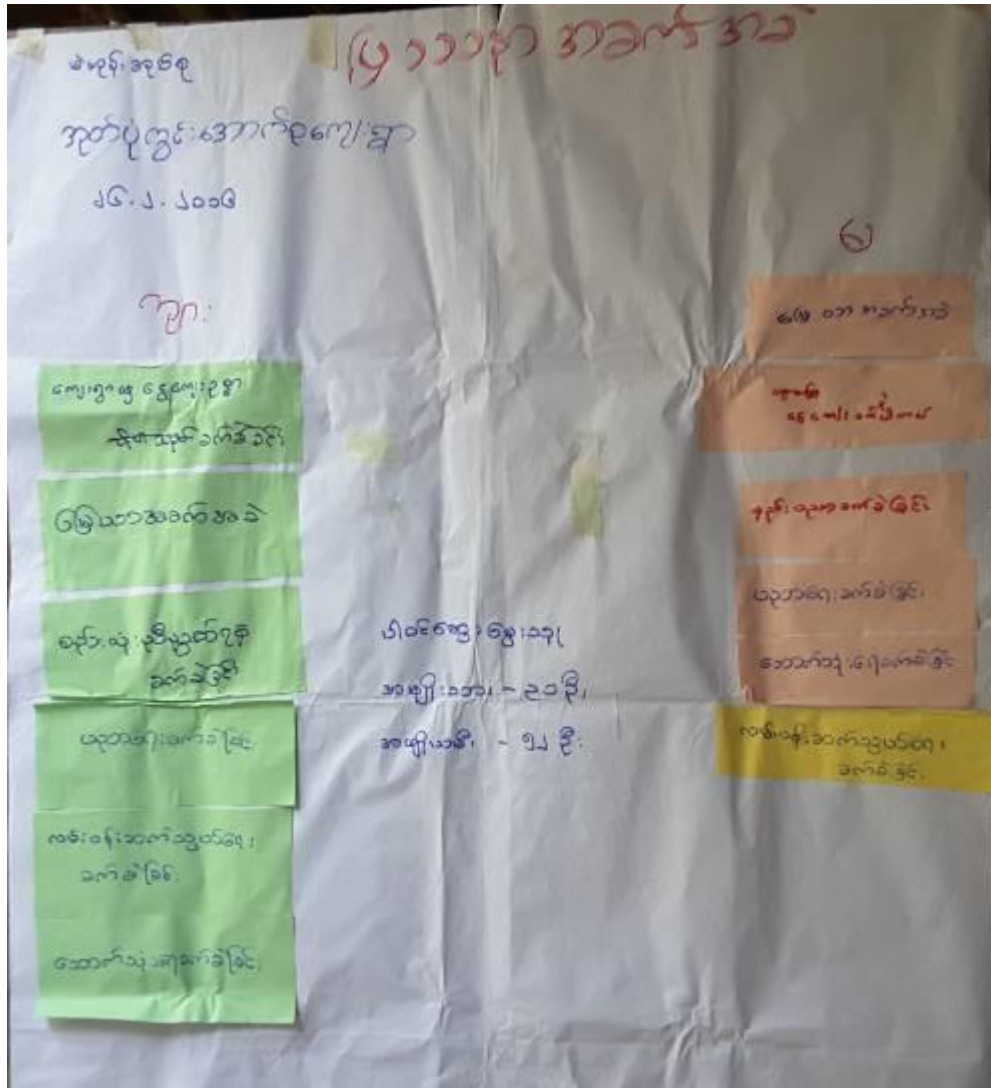 ပြဿနာ အခက် အခဲ
အုတ်ပုံကွင်းအောက်စုကျေးရွာ
၂၆.၂.၂၀၁၆
ကျား
မ
ကျေးရွာ၌ ငွေကြေးဥစ္စာ
ခက်ခဲခြင်း
မြေယာအခက်အခဲ
စည်းလုံးညီညွတ်ရန်
ခက်ခဲခြင်း
ပညာရေးခက်ခဲခြင်း
လမ်းပန်းဆက်သွယ်ရေး
ခက်ခဲခြင်း
သောက်သုံးရေခက်ခဲခြင်း
ပါဝင်ဆွေးနွေးသူ
အမျိုးသား - ၃၁ ဦး
အမျိုးသမီး - ၅၂ ဦး
မြေယာအခက်အခဲ
နည်းပညာခက်ခဲခြင်း
ပညာရေးခက်ခဲခြင်း
သောက်သုံးရေခက်ခဲခြင်း
လမ်းပန်းဆက်သွယ်ရေး
ခက်ခဲခြင်း